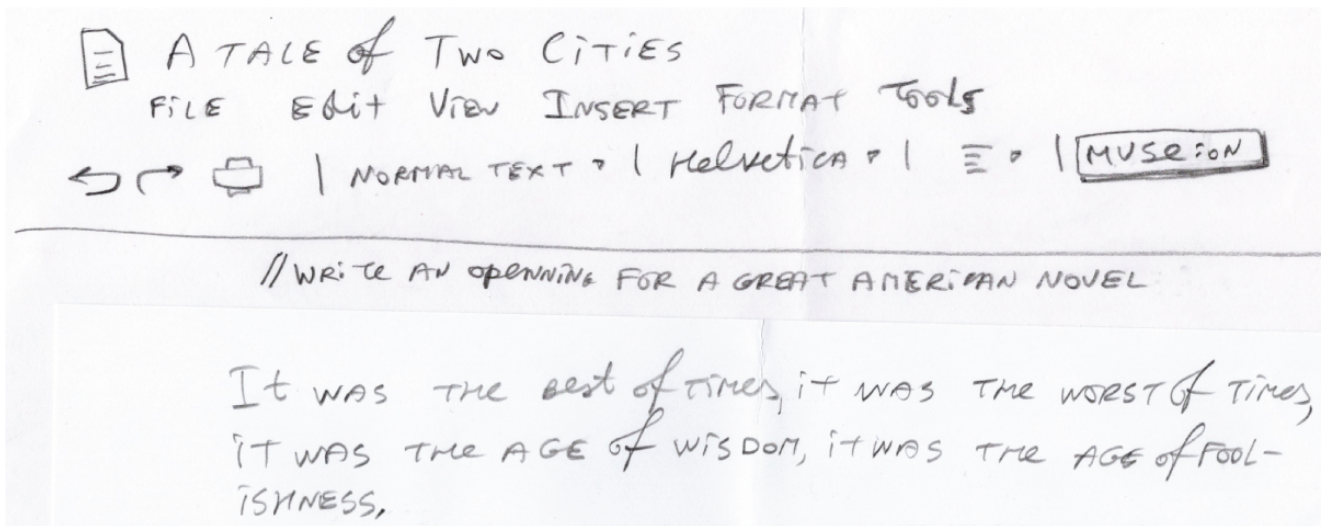 A TALE of Two CiTiES
FiLE Edit View INSERT FORMAT Tools
| NORMAL TEXT | Helvetica | | MUSE:ON
// WRiTe AN OpENNiNG FOR A GREAT AMERiCAN NOVEL
It WAS THE BEST of TiMES, iT WAS THE WORST of TiMES,
iT WAS THE AGE of WiSDOM, iT WAS THE AGE of FOOL-
iSHNESS,